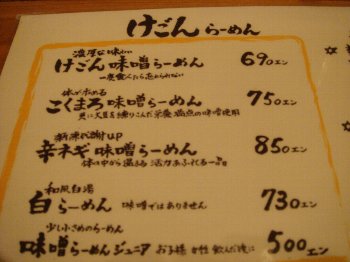 けごんらーめん
濃厚な味わい
けごん味噌らーめん 690エン
一度食べたら忘れられない
体が求める
こくまろ味噌らーめん 750エン
更に大豆を練りこんだ栄養満点の味噌使用
新陳代謝UP
辛ネギ味噌らーめん 850エン
体の中から温まる 活力あふれる一品。
和風白湯
白らーめん 味噌ではありません 730エン
少し小さめのらーめん
味噌らーめんジュニア お子様 女性 飲んだ後に 500エン